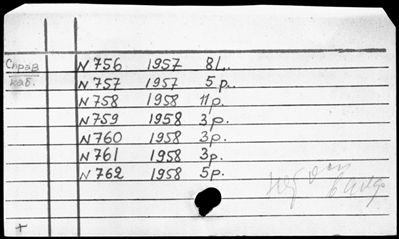 Справ N 756 1957 8 L.
каб. N 757 1957 5 p.
N 758 1958 11 p.
N 759 1958 3 p.
N 760 1958 3 p.
N 761 1958 3 p.
N 762 1958 5 p.
+